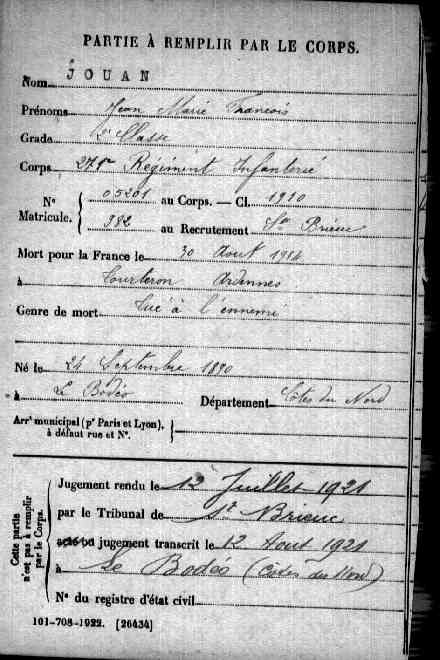 PARTIE À REMPLIR PAR LE CORPS.
Nom JOUAN
Prénoms Jean Marie Francois
Grade 2e Classe
Corps 271e Régiment Infanterie
N° Matricule. { 05201 au Corps. — Cl. 1910
382 au Recrutement St Brieuc
Mort pour la France le 30 Aout 1914
à Tourteron Ardennes
Genre de mort Tué à l'ennemi
Né le 24 Septembre 1890
à Le Bodéo Département Côtes du Nord
Arrt municipal (pr Paris et Lyon), à défaut rue et N°. {
Cette partie n'est pas à remplir par le Corps.
Jugement rendu le 12 Juillet 1921
par le Tribunal de St Brieuc
jugement transcrit le 12 Aout 1921
à Le Bodeo (Cotes du Nord)
N° du registre d'état civil
101-708-1922. [26434]